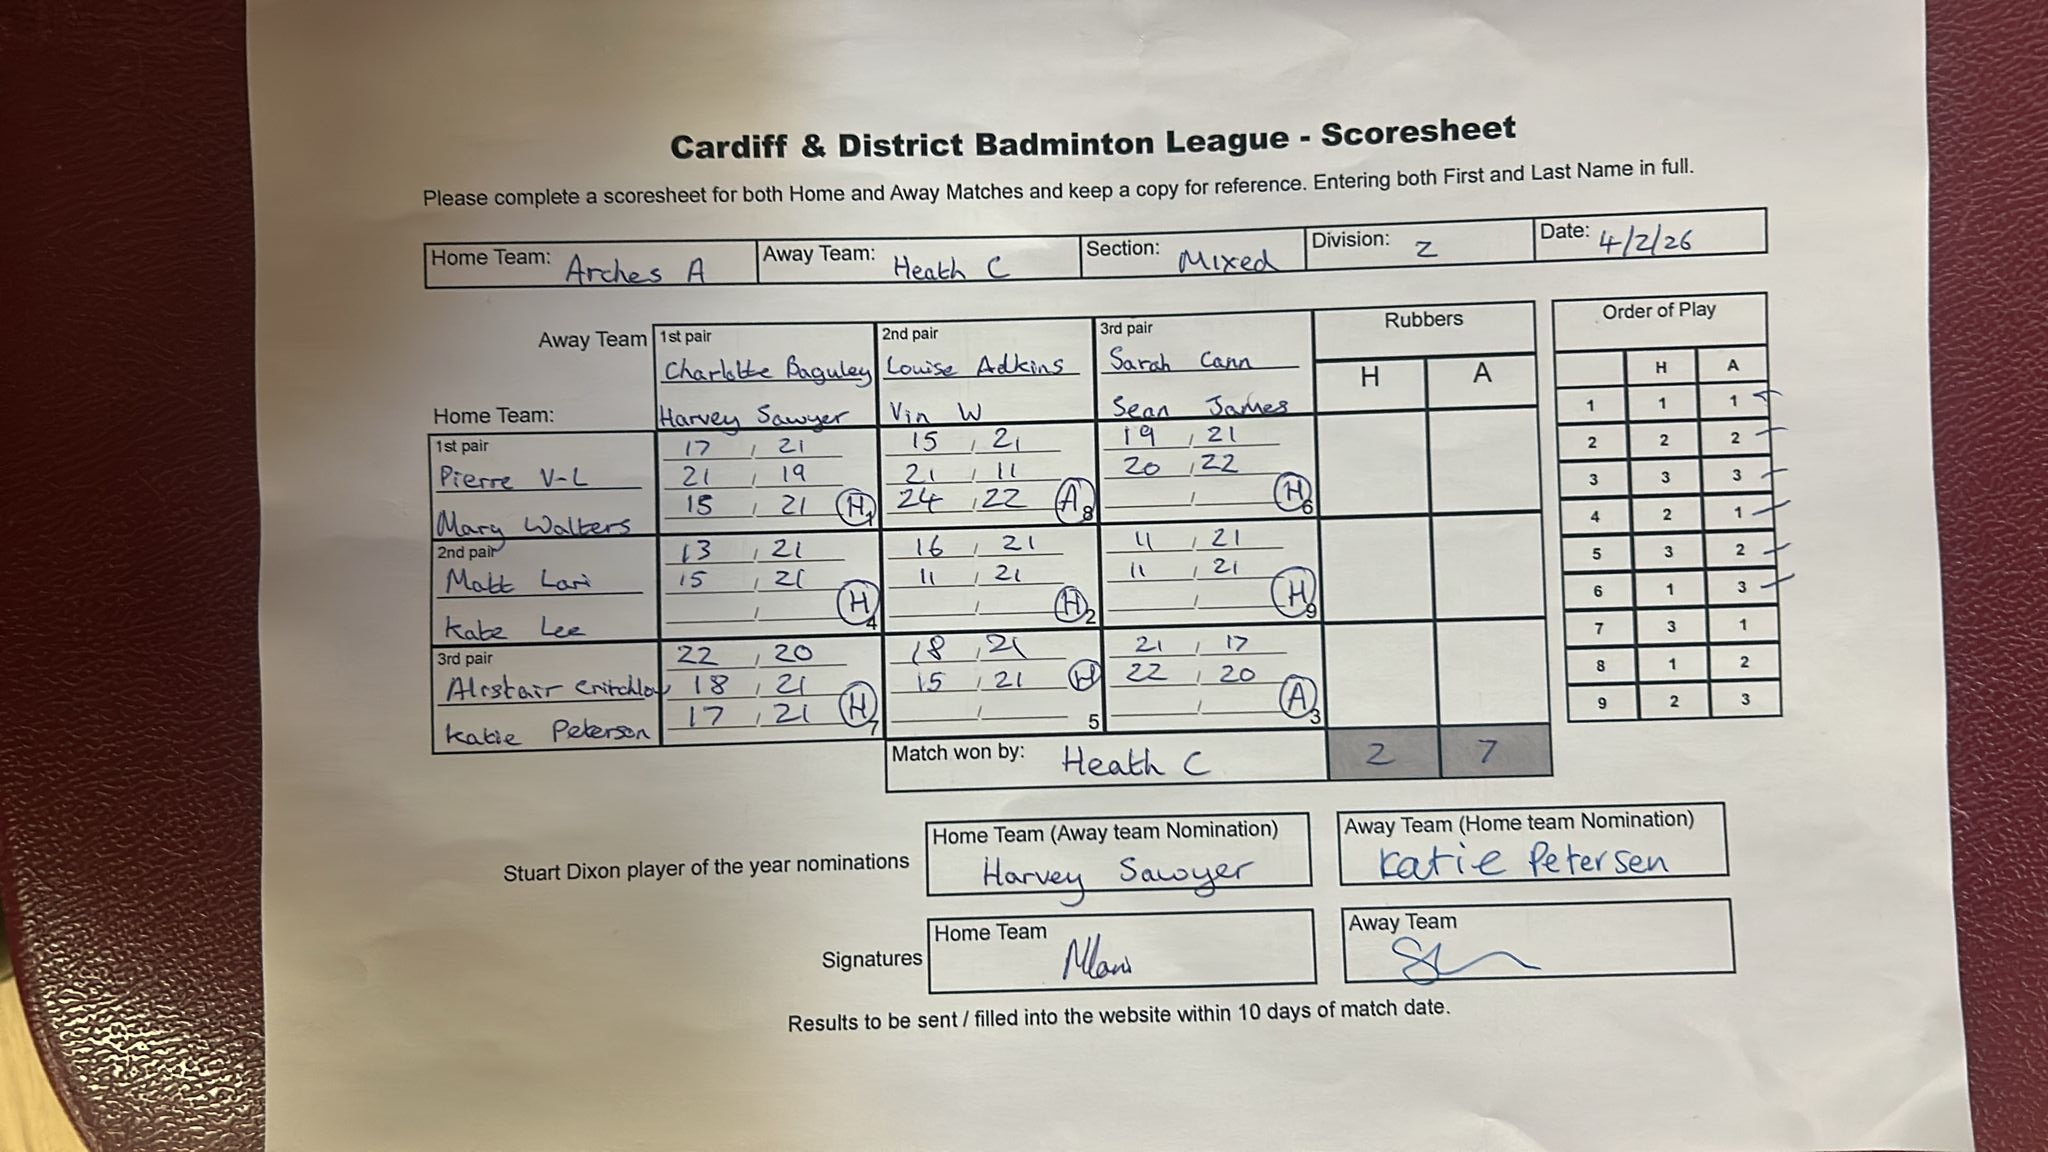 Cardiff & District Badminton League - Scoresheet
Please complete a scoresheet for both Home and Away Matches and keep a copy for reference. Entering both First and Last Name in full.
Home Team: Arches A Away Team: Heath C Section: Mixed Division: 2 Date: 4/2/26
Away Team 1st pair 2nd pair 3rd pair Rubbers Order of Play
Charlotte Baguley Louise Adkins Sarah Cann H A
Home Team: Harvey Sawyer Vin W Sean James
1st pair 17 , 21 15 , 21 19 , 21
Pierre V-L 21 , 19 21 , 11 20 , 22
Mary Walters 15 , 21 H 1 24 , 22 A 8 , H 6
2nd pair 13 , 21 16 , 21 11 , 21
Matt Lani 15 , 21 11 , 21 11 , 21
Kate Lee , H 4 , H 2 , H 9
3rd pair 22 , 20 18 , 21 21 , 17
Alistair Critchlow 18 , 21 15 , 21 H 22 , 20
Katie Peterson 17 , 21 H 7 , 5 , A 3
H A
1 1 1
2 2 2
3 3 3
4 2 1
5 3 2
6 1 3
7 3 1
8 1 2
9 2 3
Match won by: Heath C 2 7
Stuart Dixon player of the year nominations
Home Team (Away team Nomination)
Harvey Sawyer
Away Team (Home team Nomination)
Katie Petersen
Signatures
Home Team
MLani
Away Team
Results to be sent / filled into the website within 10 days of match date.